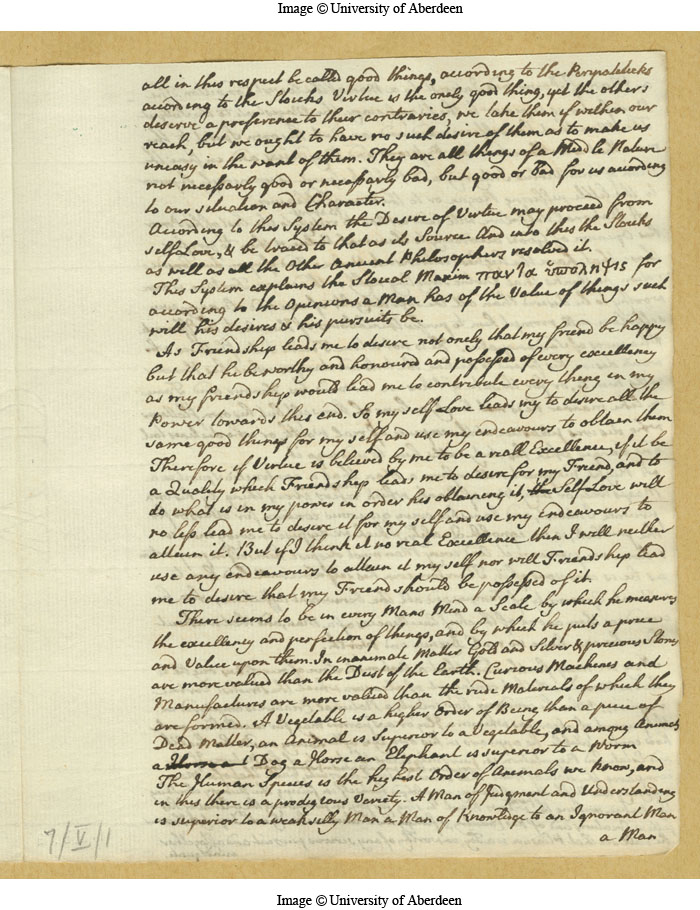 Image © University of Aberdeen
all in this respect be called good things, according to the Peripateticks
according to the Stoicks Virtue is the onely good thing, yet the others
deserve a preference to their contraries, we take them if within our
reach, but we ought to have no such desire of them as to make us
uneasy in the want of them. They are all things of a Middle Nature
not necessarly good or necessarly bad, but good or bad for us acording
to our situation and Character.
According to this System the Desire of Virtue may proceed from
self Love, & be traced to that as its Source And into this the Stoicks
as well as all the Other Ancient Philosophers resolved it.
This System explains the Stoical Maxim παντα ὑποληψις for
according to the Opinions a Man has of the Value of things such
will his desires & his pursuits be.
As Friendship leads me to desire not onely that my friend be happy
but that he be worthy and honoured and possessed of every excellency
as my friendship would lead me to contribute every thing in my
Power towards this end. So my self Love leads my to desire all the
same good things for my self and use my endeavours to obtain them
Therefore if Virtue is believed by me to be a reall Excellence, if it be
a Quality which Friendship leads me to desire for my Friend, and to
do what is in my power in order his obtaining it, the Self Love will
no less lead me to desire it for my self and use my endeavours to
attain it. But if I think it no real Excellence then I will neither
use any endeavours to attain it my self nor will Friendship lead
me to desire that my Friend should be possessed of it.
There seems to be in every Mans Mind a Scale by which he measures
the excellency and perfection of things, and by which he puts a price
and Value upon them. In inanimate Matter Gold and Silver & precious Stones
are more valued than the Dust of the Earth. Curious Machines and
Manufactures are more valued than the rude Materials of which they
are formed. A Vegetable is a higher Order of Being than a piece of
Dead Matter, an Animal is Superior to a Vegetable, and among Animals
a Dog a Horse an Elephant is superior to a Worm
The Human Species is the highest Order of Animals we know, and
in this there is a prodigious Variety. A Man of Judgment and Understanding
is superior to a weak silly Man a Man of Knowledge to an Ignorant Man
a Man
7/V/1
Image © University of Aberdeen